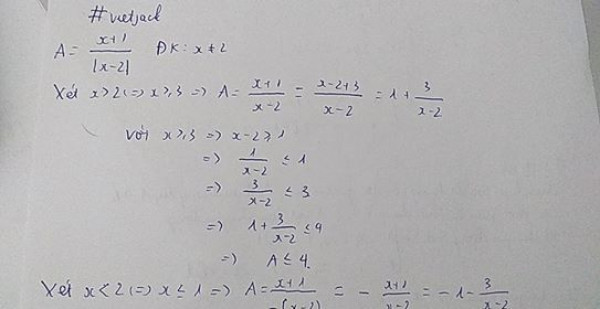 #vietjack
A = x+1 / |x-2| ĐK: x ≠ 2
Xét x > 2 (=> x ≥ 3 => A = x+1 / x-2 = x-2+3 / x-2 = 1 + 3 / x-2
Với x ≥ 3 => x-2 ≥ 1
=> 1 / x-2 ≤ 1
=> 3 / x-2 ≤ 3
=> 1 + 3 / x-2 ≤ 4
=> A ≤ 4.
Xét x < 2 (=> x ≤ 1 => A = x+1 / -(x-2) = - x+1 / x-2 = -1 - 3 / x-2